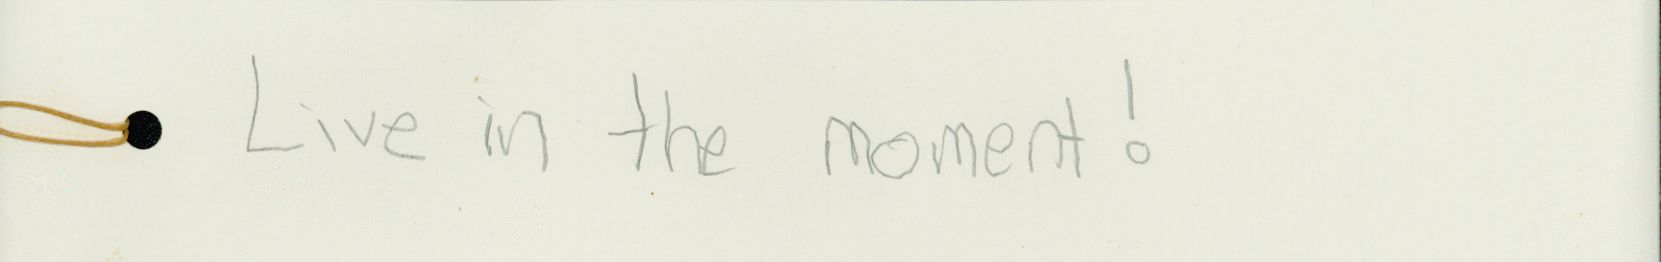 Live in the moment!